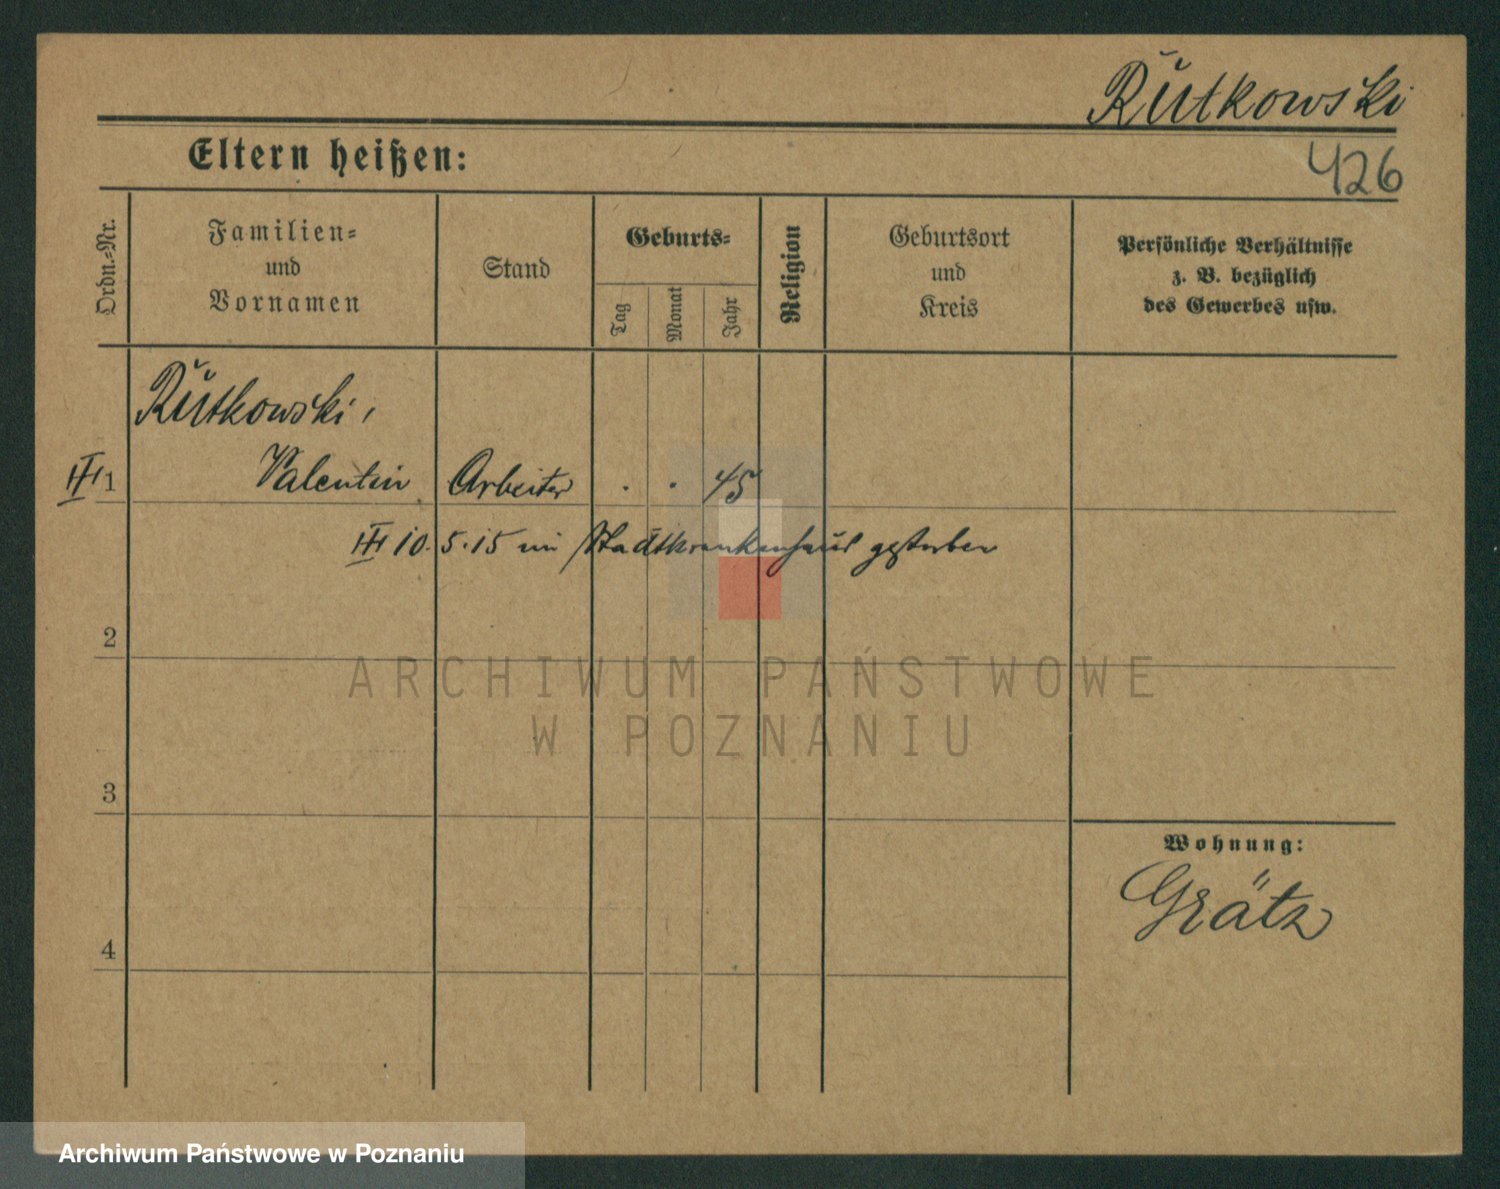 Rutkowski
Eltern heißen:
426
Ordn.-Nr.
Familien-
und
Vornamen
Stand
Geburts-
Tag
Monat
Jahr
Religion
Geburtsort
und
Kreis
Persönliche Verhältnisse
z. B. bezüglich
des Gewerbes usw.
Rutkowski,
III 1 Valentin Arbeiter . . 45
III 10.5.15 im Stadtkrankenhaus gestorben
2
3
4
Wohnung:
Grätz
ARCHIWUM PAŃSTWOWE
W POZNANIU
Archiwum Państwowe w Poznaniu